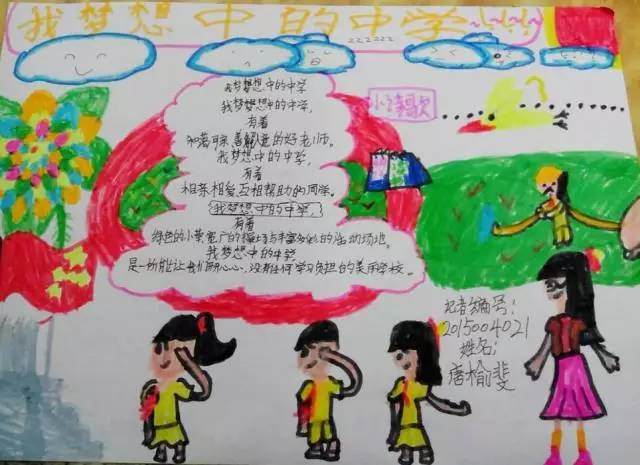 我梦想中的中学
zzzzzz
小诗歌
我梦想中的中学
我梦想中的中学,
有着
和蔼可亲、善解人意的好老师。
我梦想中的中学,
有着
相亲相爱、互相帮助的同学。
我梦想中的中学,
有着
绿色的小草、宽广的操场与丰富多彩的活动场地。
我梦想中的中学
是一所能让我们开开心心、没有任何学习负担的美丽学校。
记者编号:
2015004021
姓名:
唐榆斐